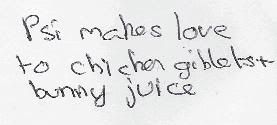 Psi makes love
to chicken giblets +
bunny juice